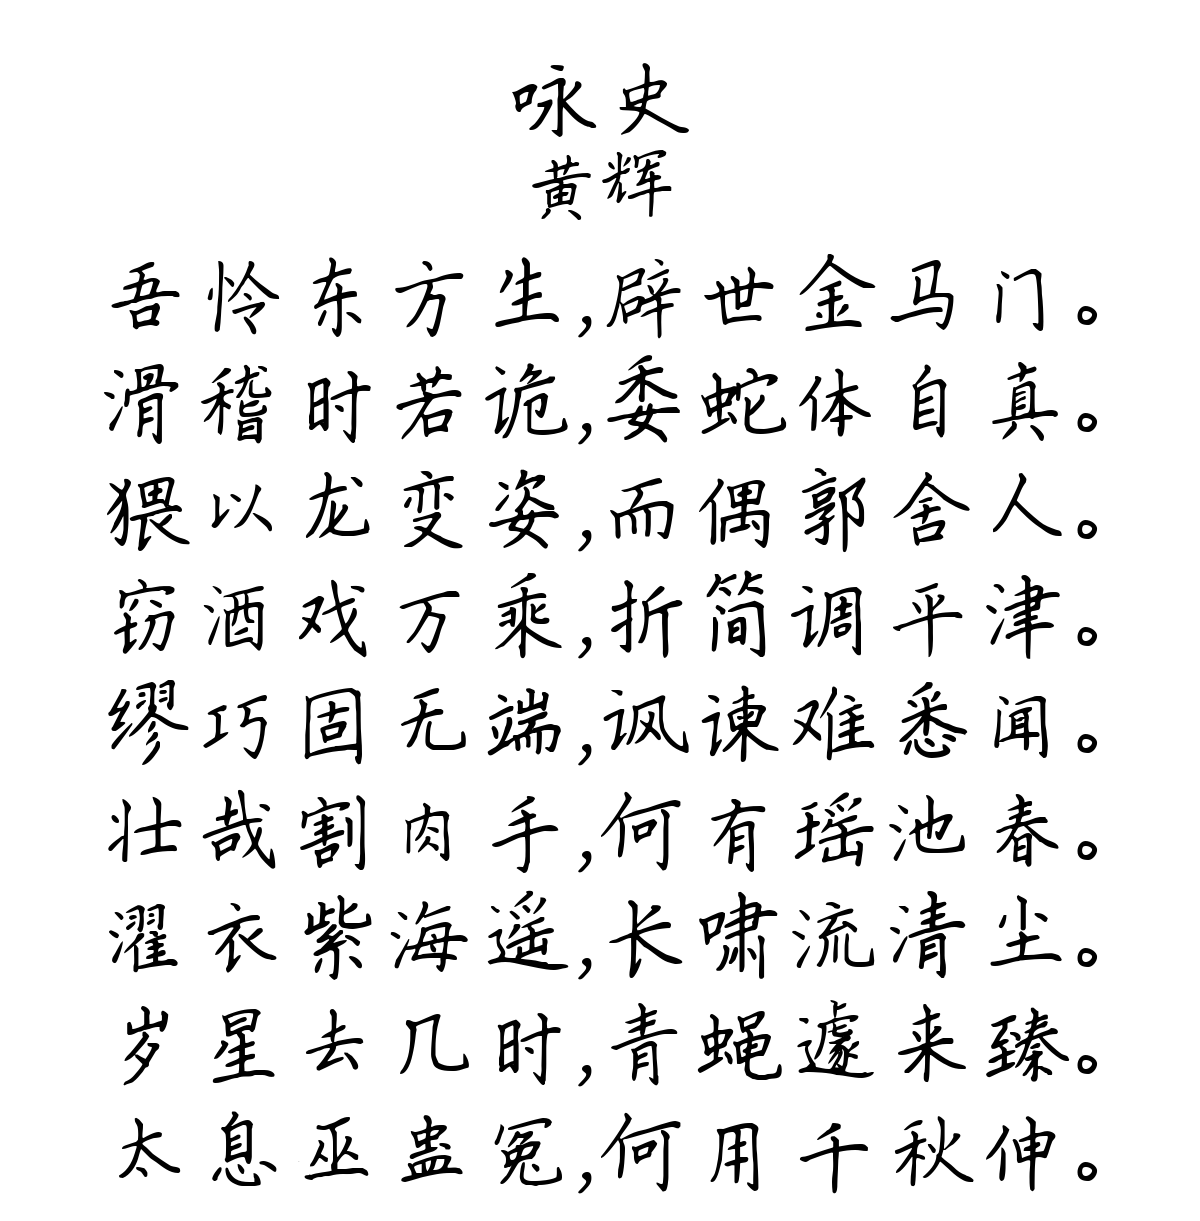 咏史
黄辉
吾怜东方生,辟世金马门。
滑稽时若诡,委蛇体自真。
猥以龙变姿,而偶郭舍人。
窃酒戏万乘,折简调平津。
缪巧固无端,讽谏难悉闻。
壮哉割肉手,何有瑶池春。
濯衣紫海遥,长啸流清尘。
岁星去几时,青蝇遽来臻。
太息巫蛊冤,何用千秋伸。